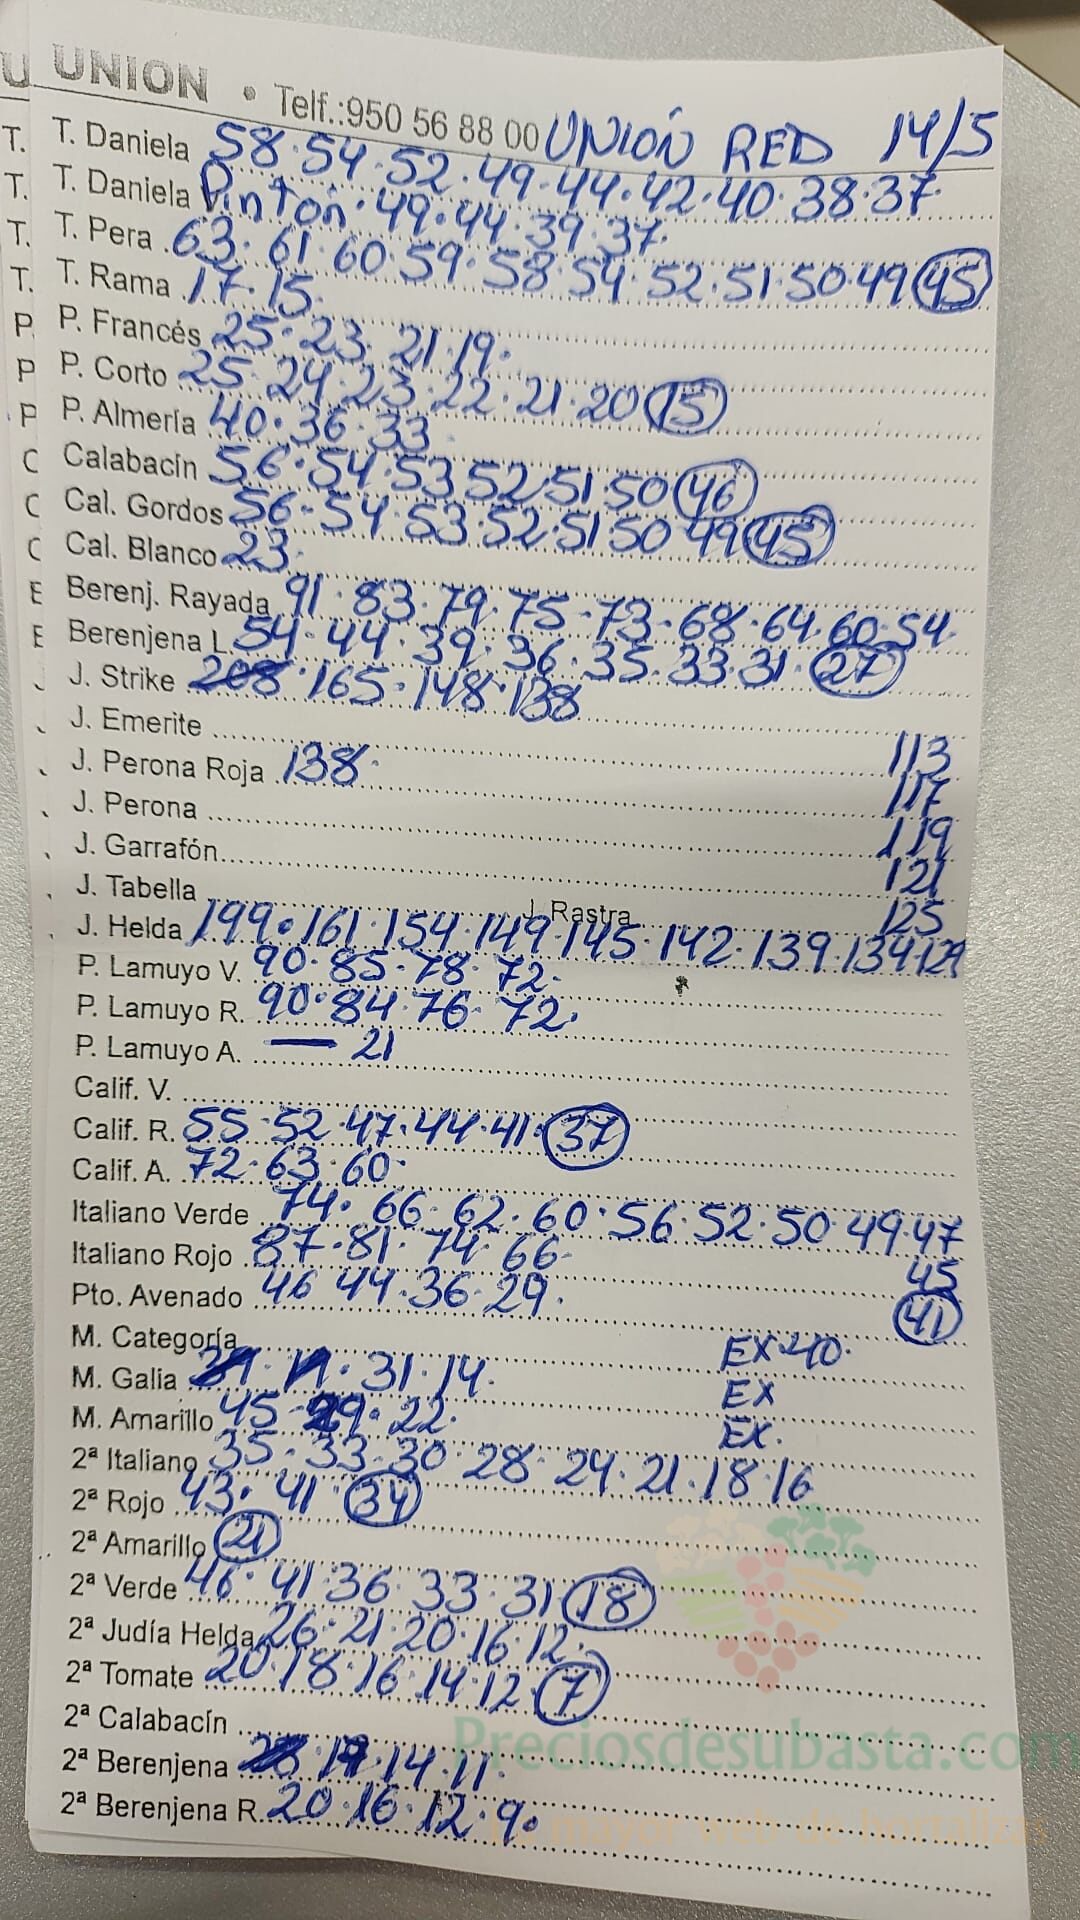 UNION • Telf.:950 56 88 00 UNIÓN RED 14/5
T. Daniela 58·54·52·49·44·42·40·38·37·
T. Daniela Pintón·49·44·39·37·
T. Pera 63·61·60·59·58·54·52·51·50·49 45
T. Rama 17·15·
P. Francés 25·23·21·19·
P. Corto 25·24·23·22·21·20 15
P. Almería 40·36·33
Calabacín 56·54·53·52·51·50 46
Cal. Gordos 56·54·53·52·51·50·49 45
Cal. Blanco 23·
Berenj. Rayada 91·83·79·75·73·68·64·60·54·
Berenjena L 54·44·39·36·35·33·31·27
J. Strike 208·165·148·138
J. Emerite 113
J. Perona Roja 138· 117
J. Perona 119
J. Garrafón 121
J. Tabella J. Rastra 125
J. Helda 199·161·154·149·145·142·139·134·129
P. Lamuyo V. 90·85·78·72·
P. Lamuyo R. 90·84·76·72·
P. Lamuyo A. — 21
Calif. V.
Calif. R. 55·52·47·44·41·37
Calif. A. 72·63·60·
Italiano Verde 74·66·62·60·56·52·50·49·47
Italiano Rojo 87·81·74·66· 45
Pto. Avenado 46 44·36·29· 41
M. Categoría EX·40·
M. Galia 31·14· EX
M. Amarillo 45·29·22· EX·
2ª Italiano 35·33·30·28·24·21·18·16
2ª Rojo 43·41·34
2ª Amarillo 21
2ª Verde 46·41·36·33·31 18
2ª Judía Helda 26·21·20·16·12·
2ª Tomate 20·18·16·14·12·7
2ª Calabacín
2ª Berenjena 14·11·
2ª Berenjena R. 20·16·12·9·
Preciosdesubasta.com
La mayor web de hortalizas